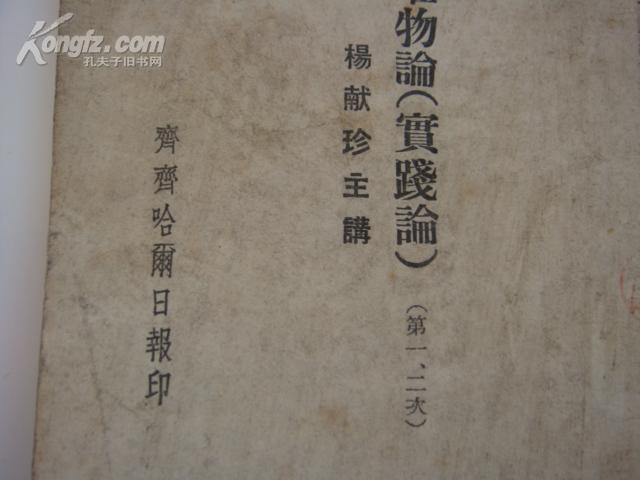 Kongfz.com
孔夫子旧书网
物論(實踐論)
(第一、二次)
楊献珍主講
齊齊哈爾日報印